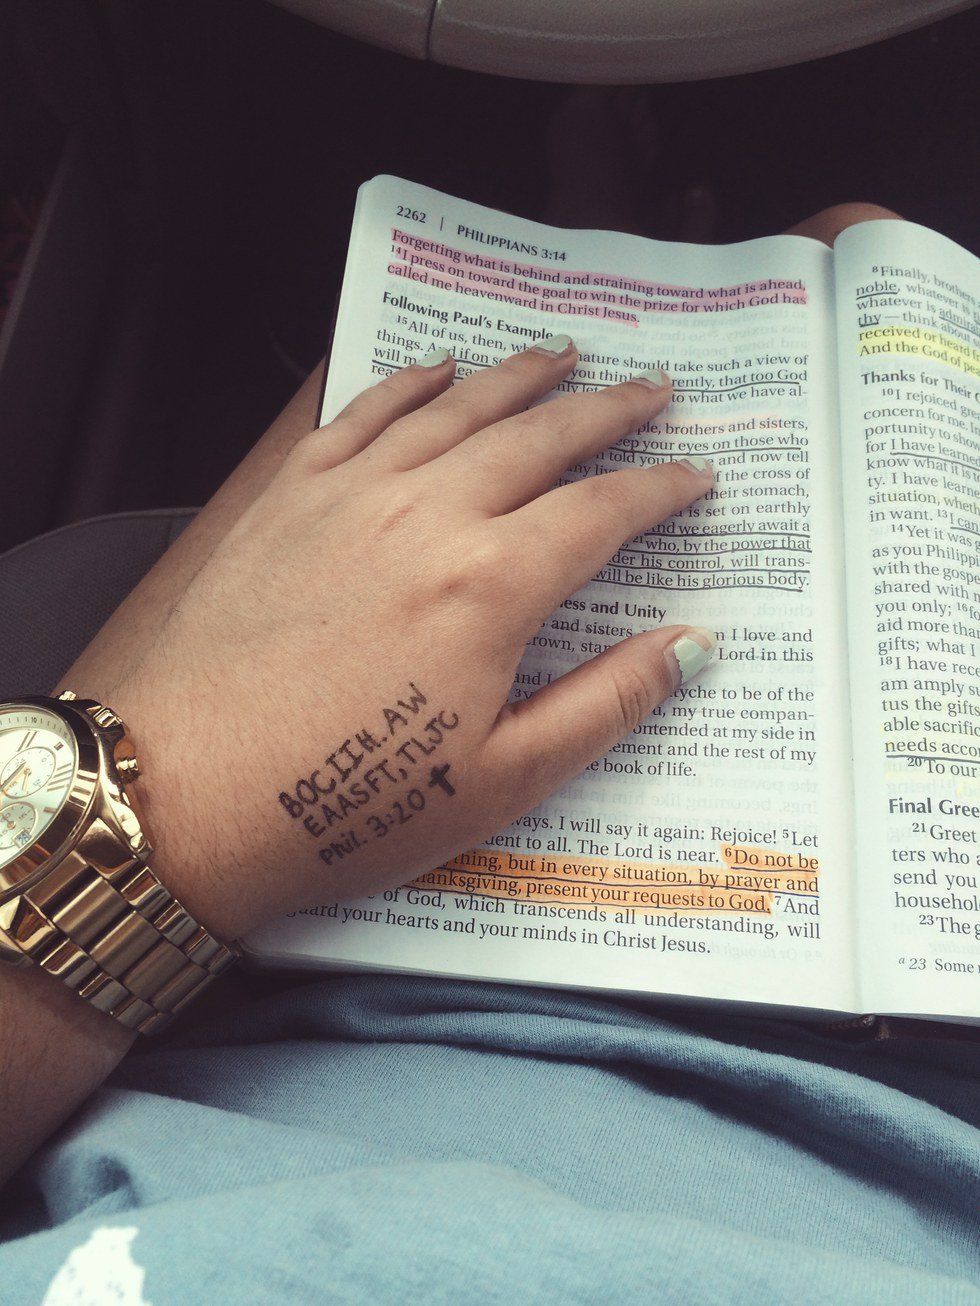 2262 | PHILIPPIANS 3:14
Forgetting what is behind and straining toward what is ahead,
14 I press on toward the goal to win the prize for which God has
called me heavenward in Christ Jesus.
Following Paul's Example
15 All of us, then, mature should take such a view of
things. And if on you think rently, that too God
will
to what we have al-
brothers and sisters,
eep your eyes on those who
told you and now tell
of the cross of
their stomach,
is set on earthly
and we eagerly await a
21 who, by the power that
his control, will trans-
will be like his glorious body.
ess and Unity
and sisters I love and
crown, Lord in this
and I
tyche to be of the
my true compan-
contended at my side in
ement and the rest of my
book of life.
ways. I will say it again: Rejoice! 5 Let
dent to all. The Lord is near. 6 Do not be
thing, but in every situation, by prayer and
thanksgiving, present your requests to God. 7 And
of God, which transcends all understanding, will
guard your hearts and your minds in Christ Jesus.
BOCIIH. AW
EAASFT, TLJC
Phil. 3:20
8 Finally, brothers
noble, whatever
whatever is
thy — think about
received or heard
And the God of
Thanks for Their
10 I rejoiced
concern for me.
portunity to show
for I have learned
know what it is
ty. I have
situation,
in want. 13 I can
14 Yet it was
as you
with the
shared with
you only; 16
aid more than
gifts; what I
18 I have
am amply
tus the gifts
able
needs
20 To our
Final
21 Greet
ters who
send you
household
23 The
a 23 Some